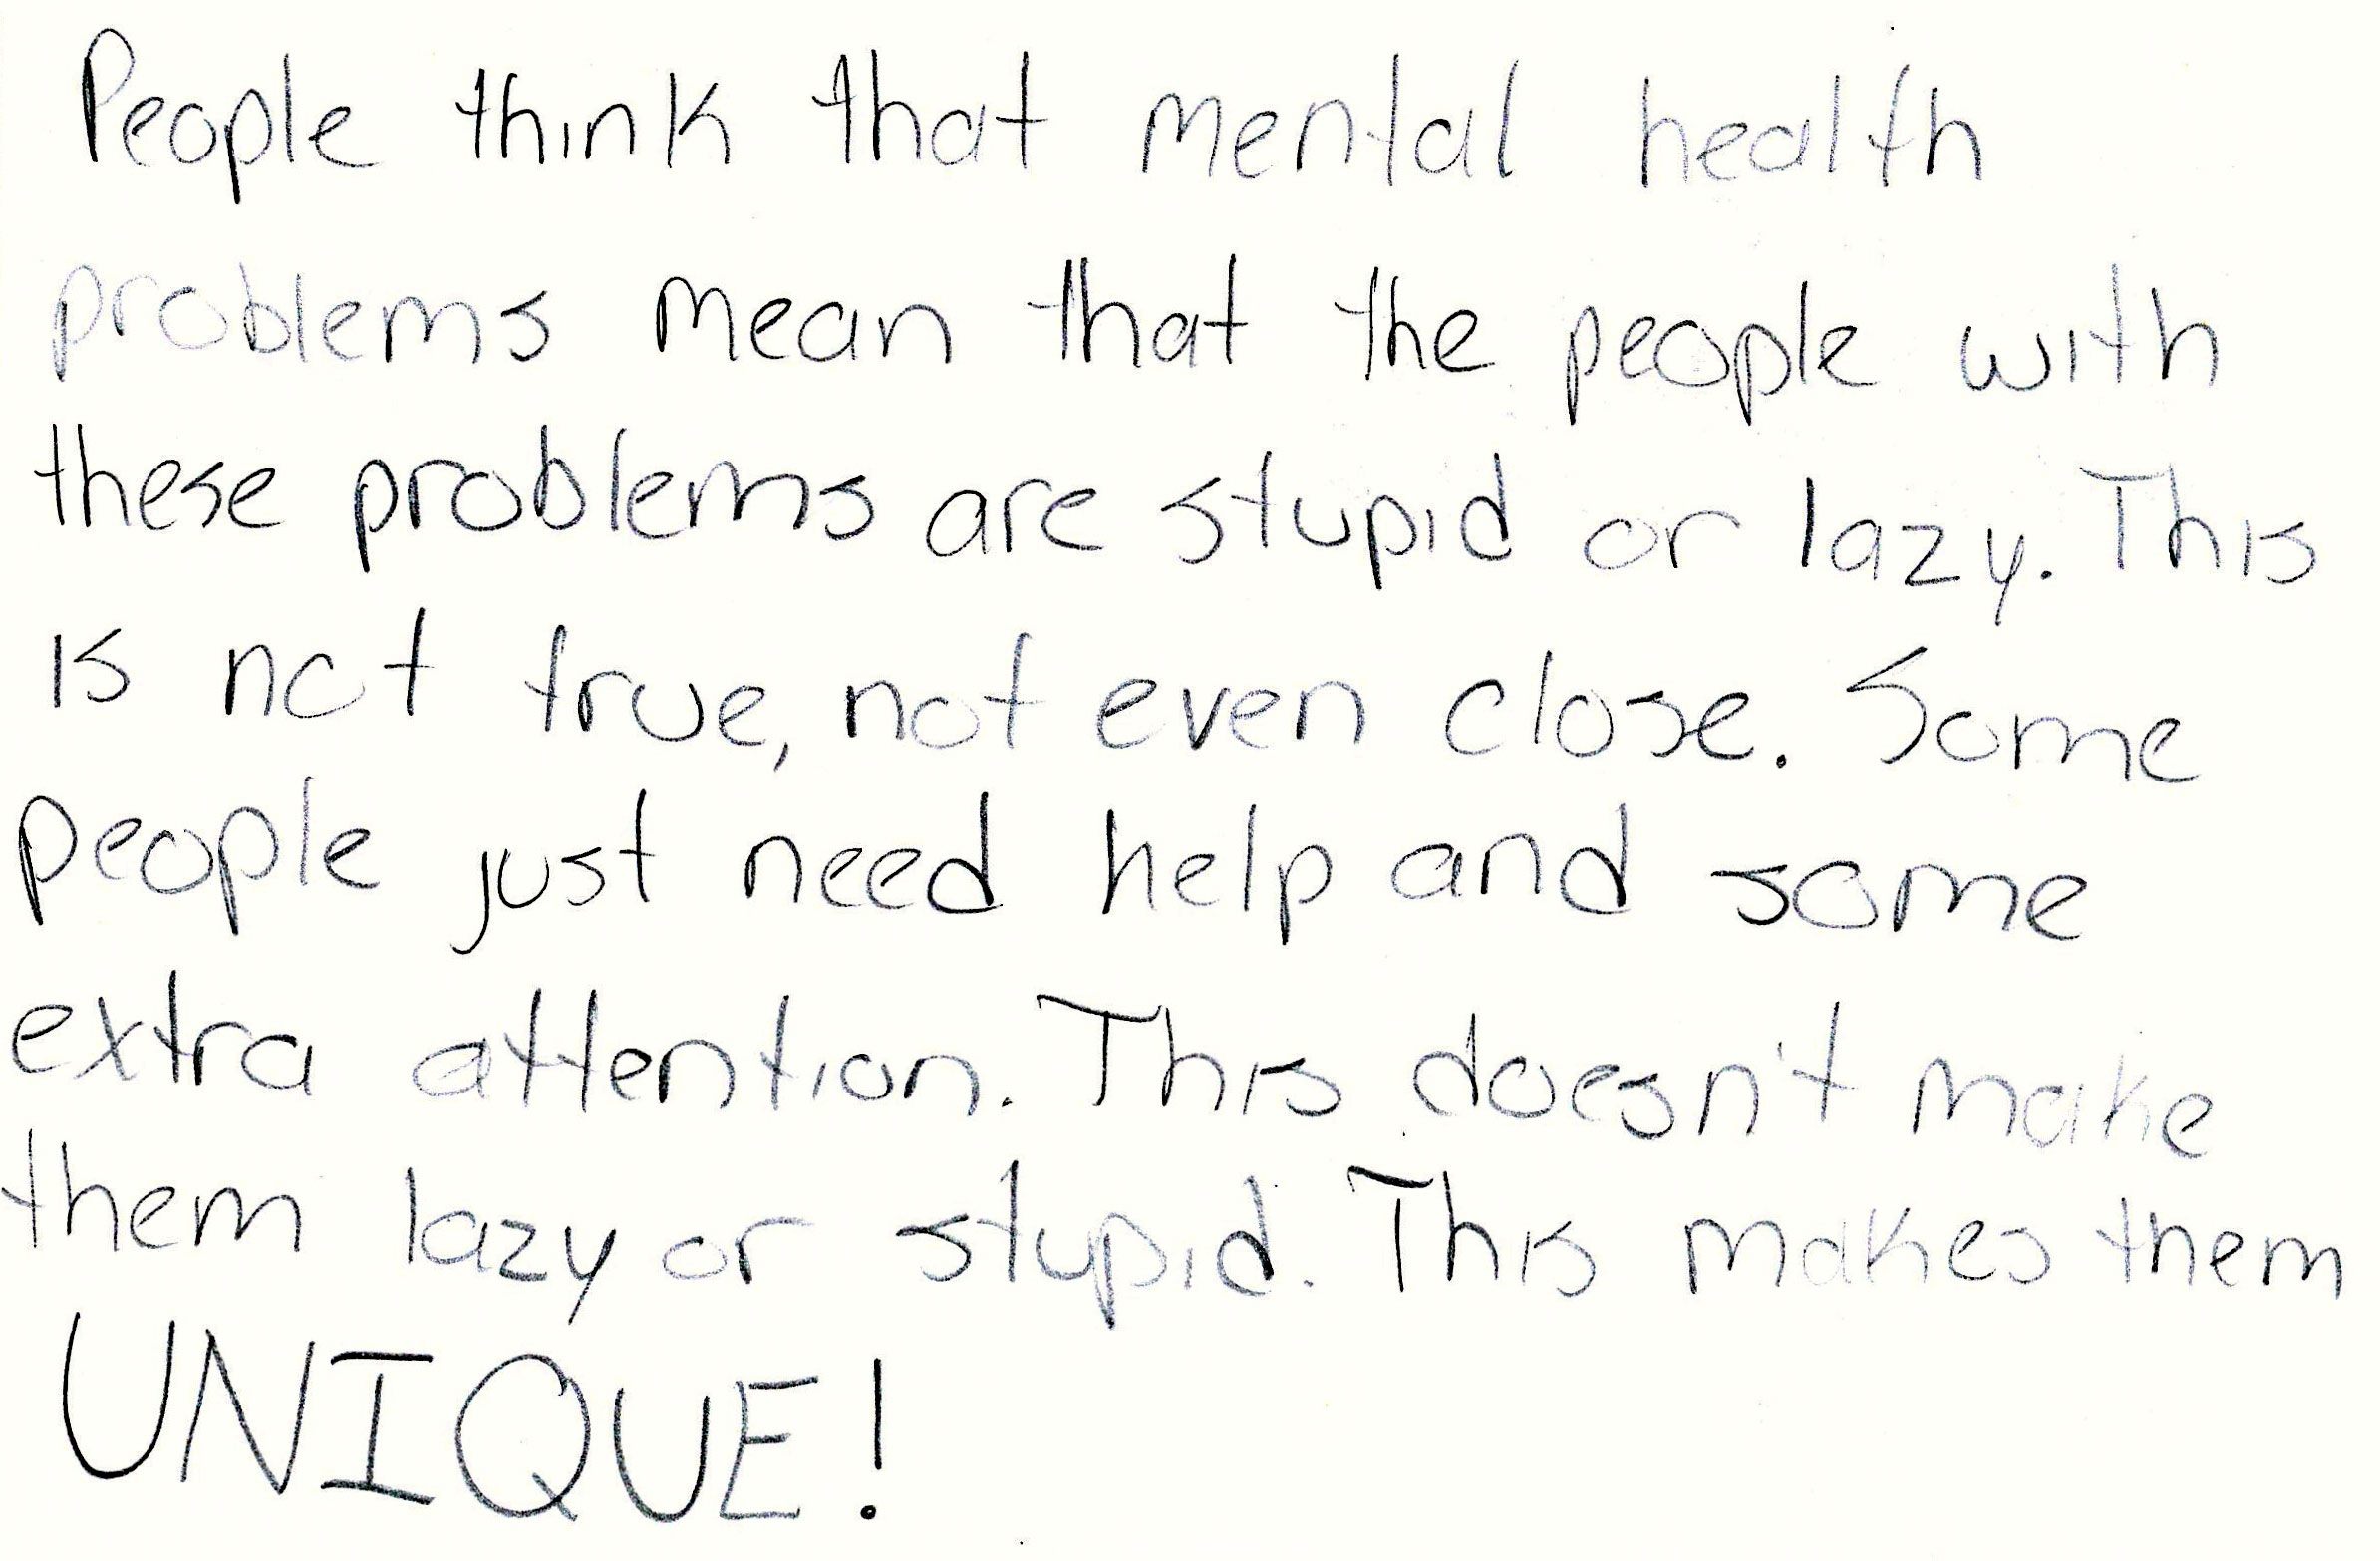 People think that mental health
problems mean that the people with
these problems are stupid or lazy. This
is not true, not even close. Some
people just need help and some
extra attention. This doesn't make
them lazy or stupid. This makes them
UNIQUE!